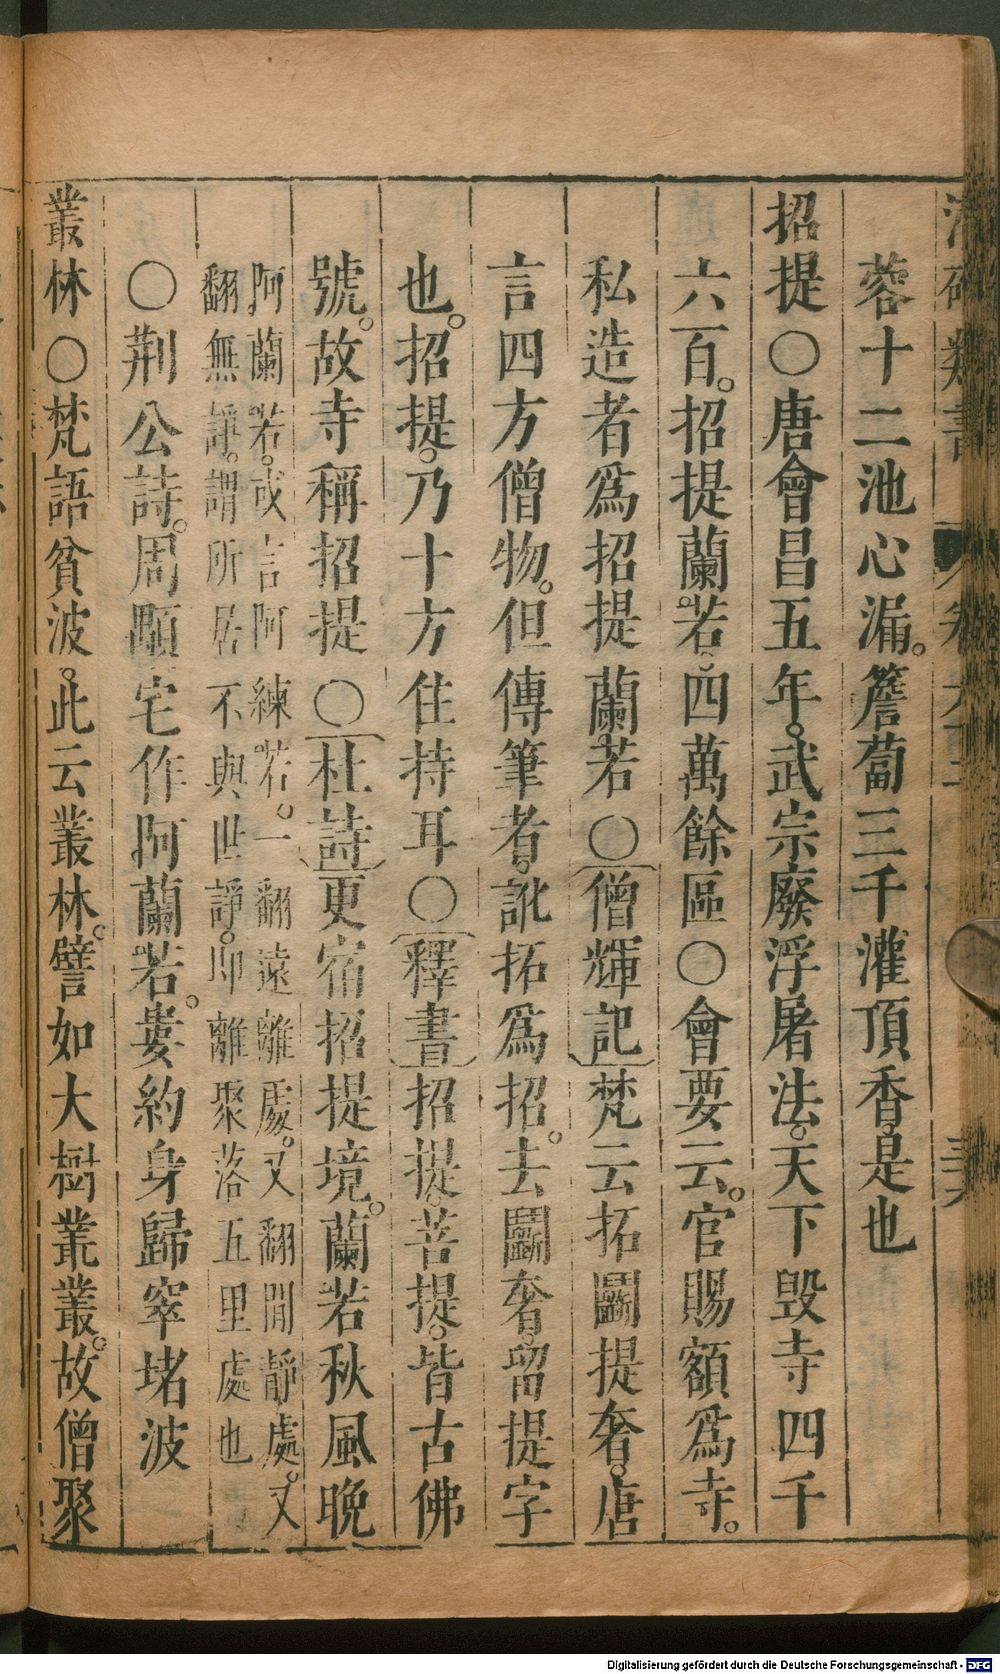 蓉十二池心漏。簷蔔三千灌頂香。是也
招提〇唐會昌五年。武宗廢浮屠法。天下毀寺四千
六百。招提蘭若。四萬餘區〇會要云。官賜額爲寺。
私造者爲招提蘭若〇僧輝記梵云拓鬬提奢。唐
言四方僧物。但傳筆者。訛拓爲招。去鬬奢。留提字
也。招提。乃十方住持耳〇釋書招提。菩提。皆古佛
號。故寺稱招提〇杜詩更宿招提境。蘭若秋風晚
阿蘭若。或言阿練若。一翻遠離處。又翻閒靜處。又
翻無諍。謂所居不與世諍。即離聚落五里處也
〇荆公詩。周顒宅作阿蘭若。婁約身歸窣堵波
叢林〇梵語貧波。此云叢林。譬如大樹叢叢。故僧聚
Digitalisierung gefördert durch die Deutsche Forschungsgemeinschaft - DFG